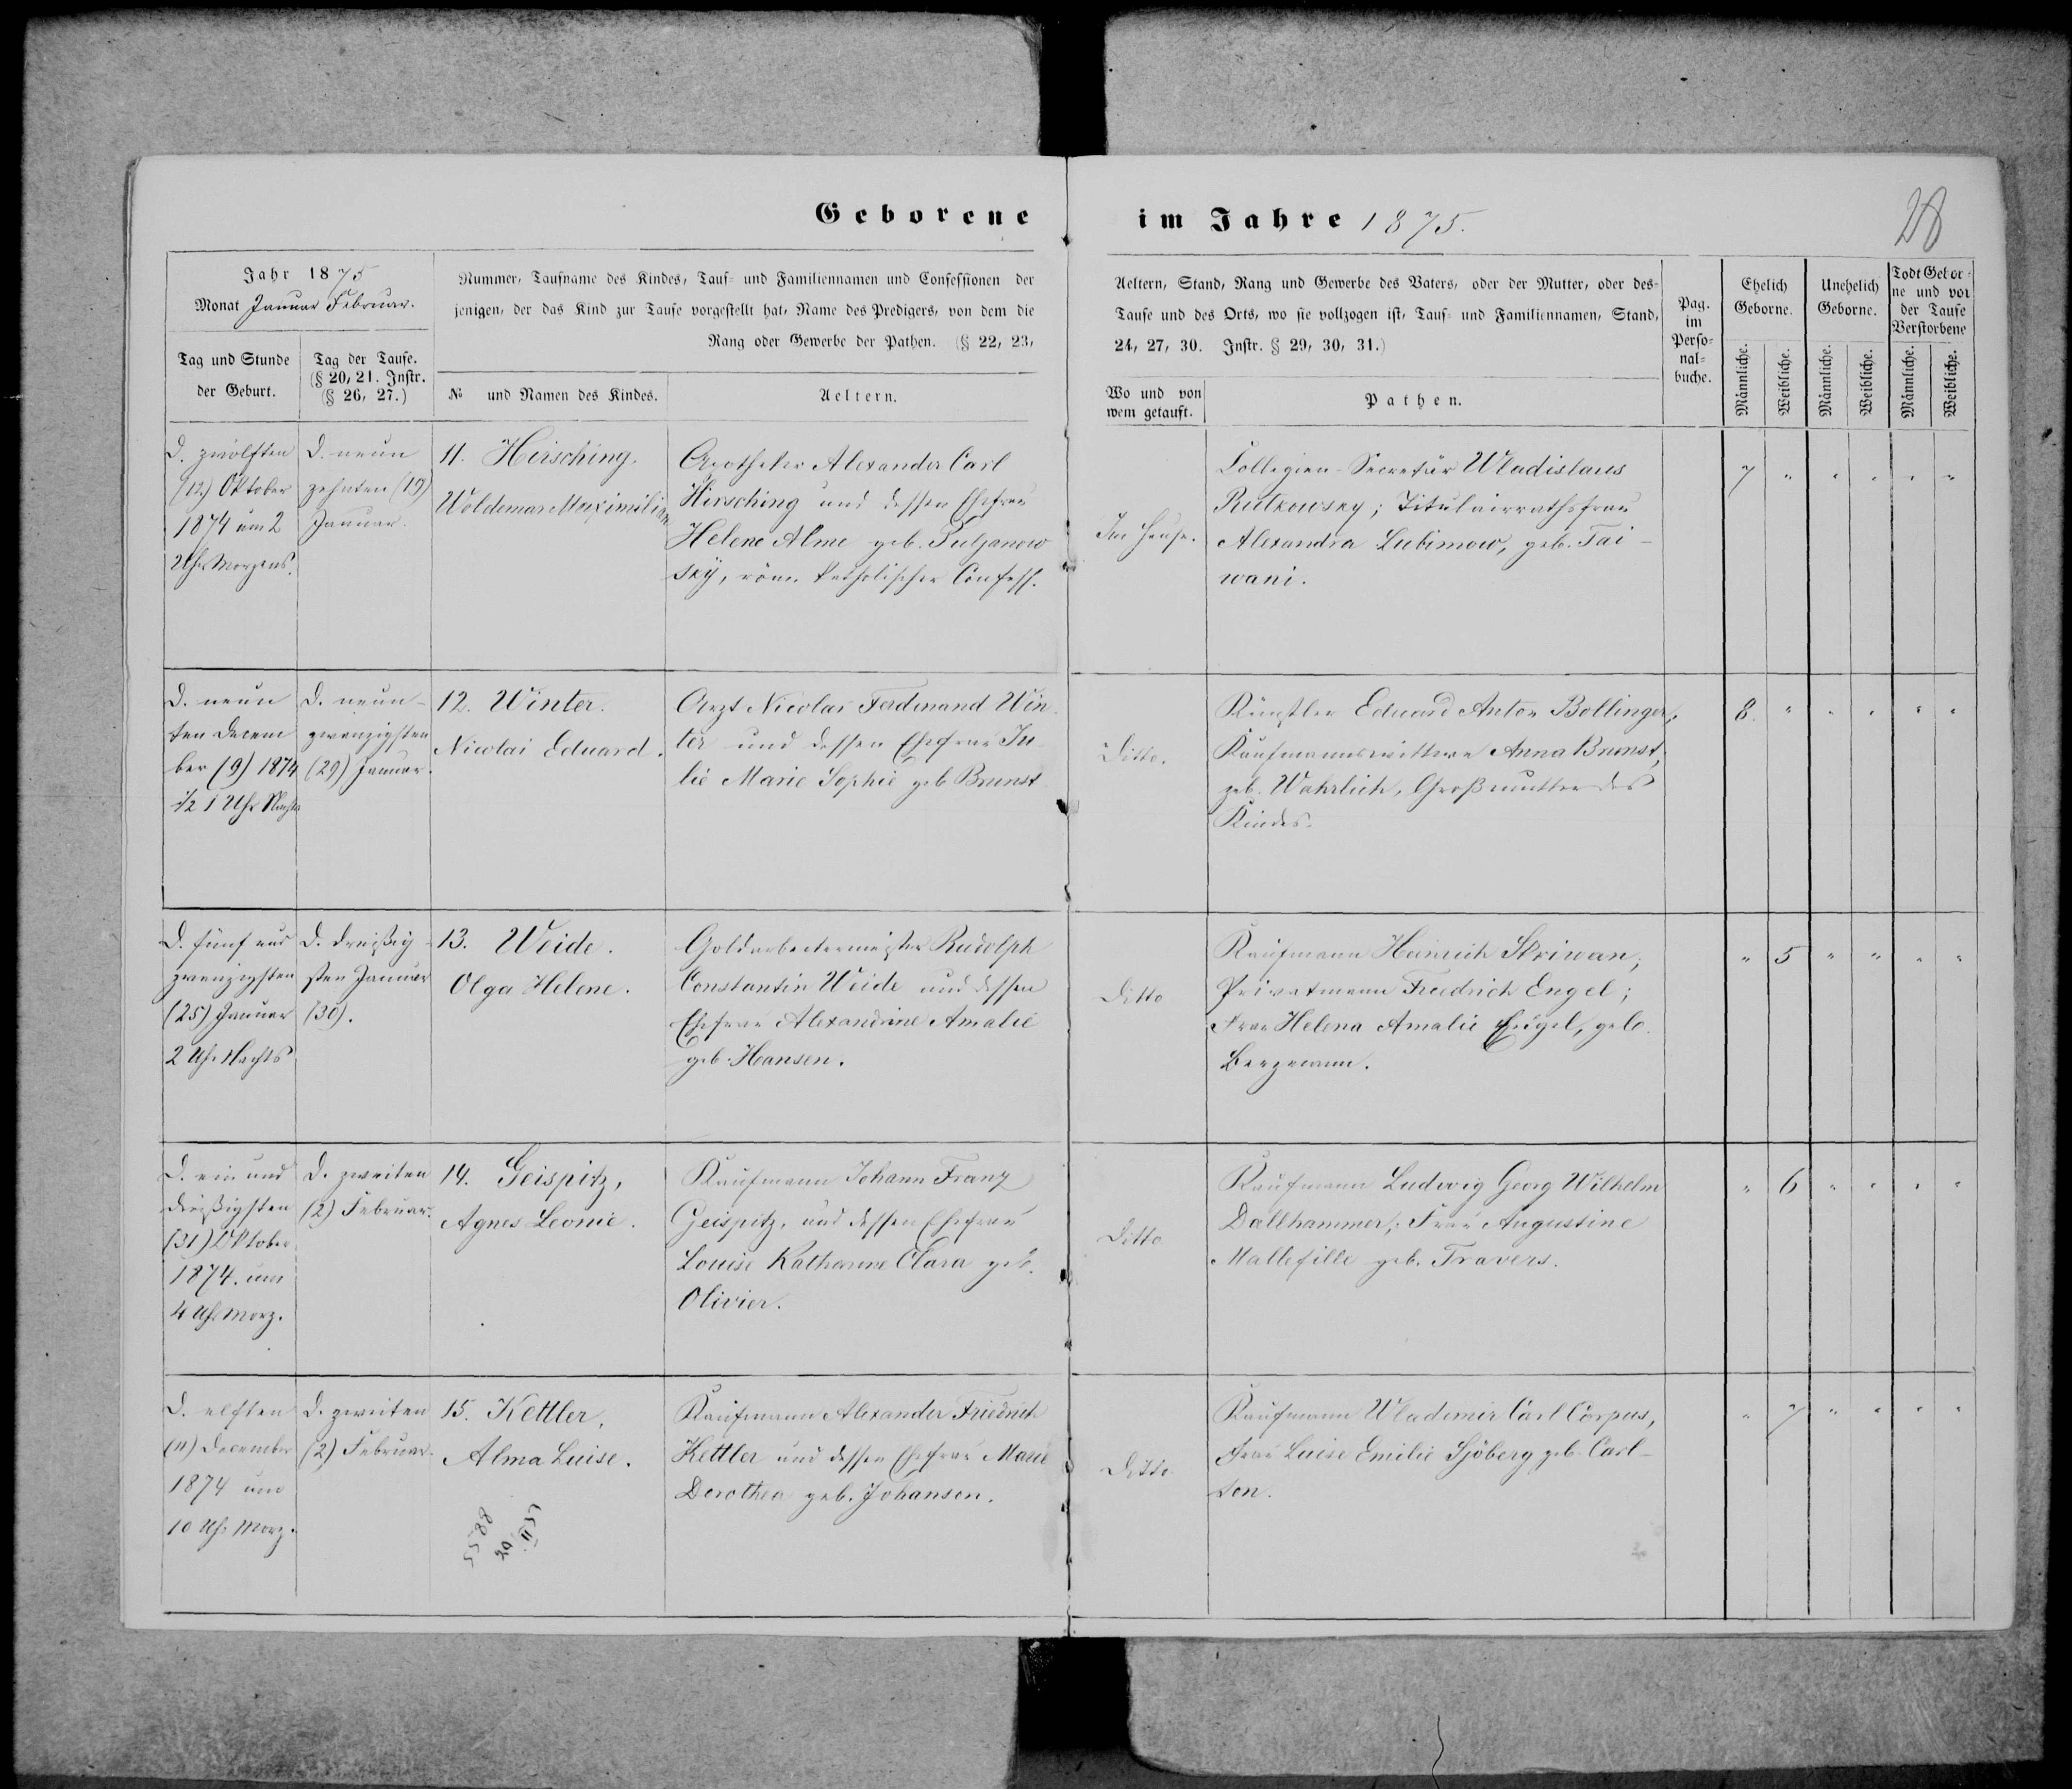 Geborene im Jahre 1875.
28
Jahr 1875
Monat Januar Februar.
Nummer, Taufname des Kindes, Tauf- und Familiennamen und Confessionen der
jenigen, der das Kind zur Taufe vorgestellt hat, Name des Predigers, von dem die
Rang oder Gewerbe der Pathen. (§ 22, 23,
Tag und Stunde
der Geburt.
Tag der Taufe.
(§ 20, 21. Instr.
(§ 26, 27.)
№ und Namen des Kindes.
Aeltern.
Aeltern, Stand, Rang und Gewerbe des Vaters, oder der Mutter, oder des-
Taufe und des Orts, wo sie vollzogen ist, Tauf- und Familiennamen, Stand,
24, 27, 30. Instr. § 29, 30, 31.)
Wo und von
wem getauft.
Pathen.
Pag.
im
Perso-
nal-
buche.
Ehelich
Geborne.
Unehelich
Geborne.
Todt Gebor-
ne und vor
der Taufe
Verstorbene
Männliche.
Weibliche.
Männliche.
Weibliche.
Männliche.
Weibliche.
D. zwölften
(12.) Oktober
1874 um 2
Uhr Morgens.
D. neun
zehnten (19)
Januar.
11. Hirsching,
Woldemar Maximilian
Apotheker Alexander Carl
Hirsching und dessen Ehefrau
Helene Alme geb. Tulzanow
sky, röm. katholischer Confess.
Im Hause.
Collegien-Secretär Wladislaus
Rutkowsky; Titulairrathsfrau
Alexandra Lubimow, geb. Tai-
wani.
7 " " " " "
D. neun
ten Decem
ber (9) 1874
1/2 1 Uhr Nachts
D. neun-
zwanzigsten
(29) Januar.
12. Winter.
Nicolai Eduard.
Arzt Nicolai Ferdinand Win-
ter und dessen Ehefrau Ju-
lie Marie Sophie geb Brunst
Ditto.
Künstler Eduard Anton Bollinger;
Kaufmannswittwe Anna Brunst,
geb. Wahrlich, Großmutter des
Kindes.
8. " " " " "
D. fünf und
zwanzigsten
(25) Januar
2 Uhr Nachts
D. dreißig-
sten Januar
(30).
13. Weide.
Olga Helene.
Goldarbeitermeister Rudolph
Constantin Weide und dessen
Ehefrau Alexandrine Amalie
geb. Hansen.
Ditto
Kaufmann Heinrich Skriwan;
Privatmann Friedrich Engel;
Frau Helena Amalie Engel, geb.
Bergmann.
" 5 " " " "
D. ein und
dreißigsten
(31) Oktober
1874. um
4 Uhr Morg.
D. zweiten
(2) Februar.
14. Geispitz,
Agnes Leonie.
Kaufmann Johann Franz
Geispitz, und dessen Ehefrau
Louise Katharine Clara geb.
Olivier.
Ditto
Kaufmann Ludwig Georg Wilhelm
Dallhammer; Frau Augustine
Mallefille geb. Travers.
" 6 " " " "
D. elften
(11) December
1874 um
10 Uhr Morg.
D. zweiten
(2) Februar.
15. Kettler,
Alma Luise.
Kaufmann Alexander Friedrich
Kettler und dessen Ehefrau Marie
Dorothea geb. Johansen.
Ditto
Kaufmann Wladimir Carl Corpus,
Frau Luise Emilie Sjöberg geb. Carl-
son.
" 7 " " " "
8855
20